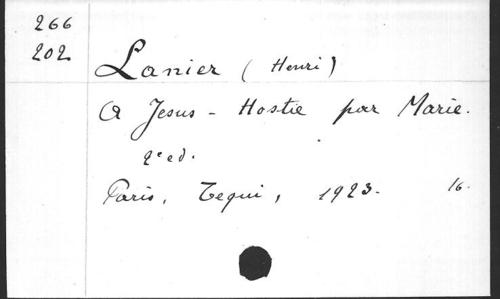 266
202
Lanier (Henri)
A Jesus - Hostie par Marie.
2e ed.
Paris, Tequi, 1923. 16.